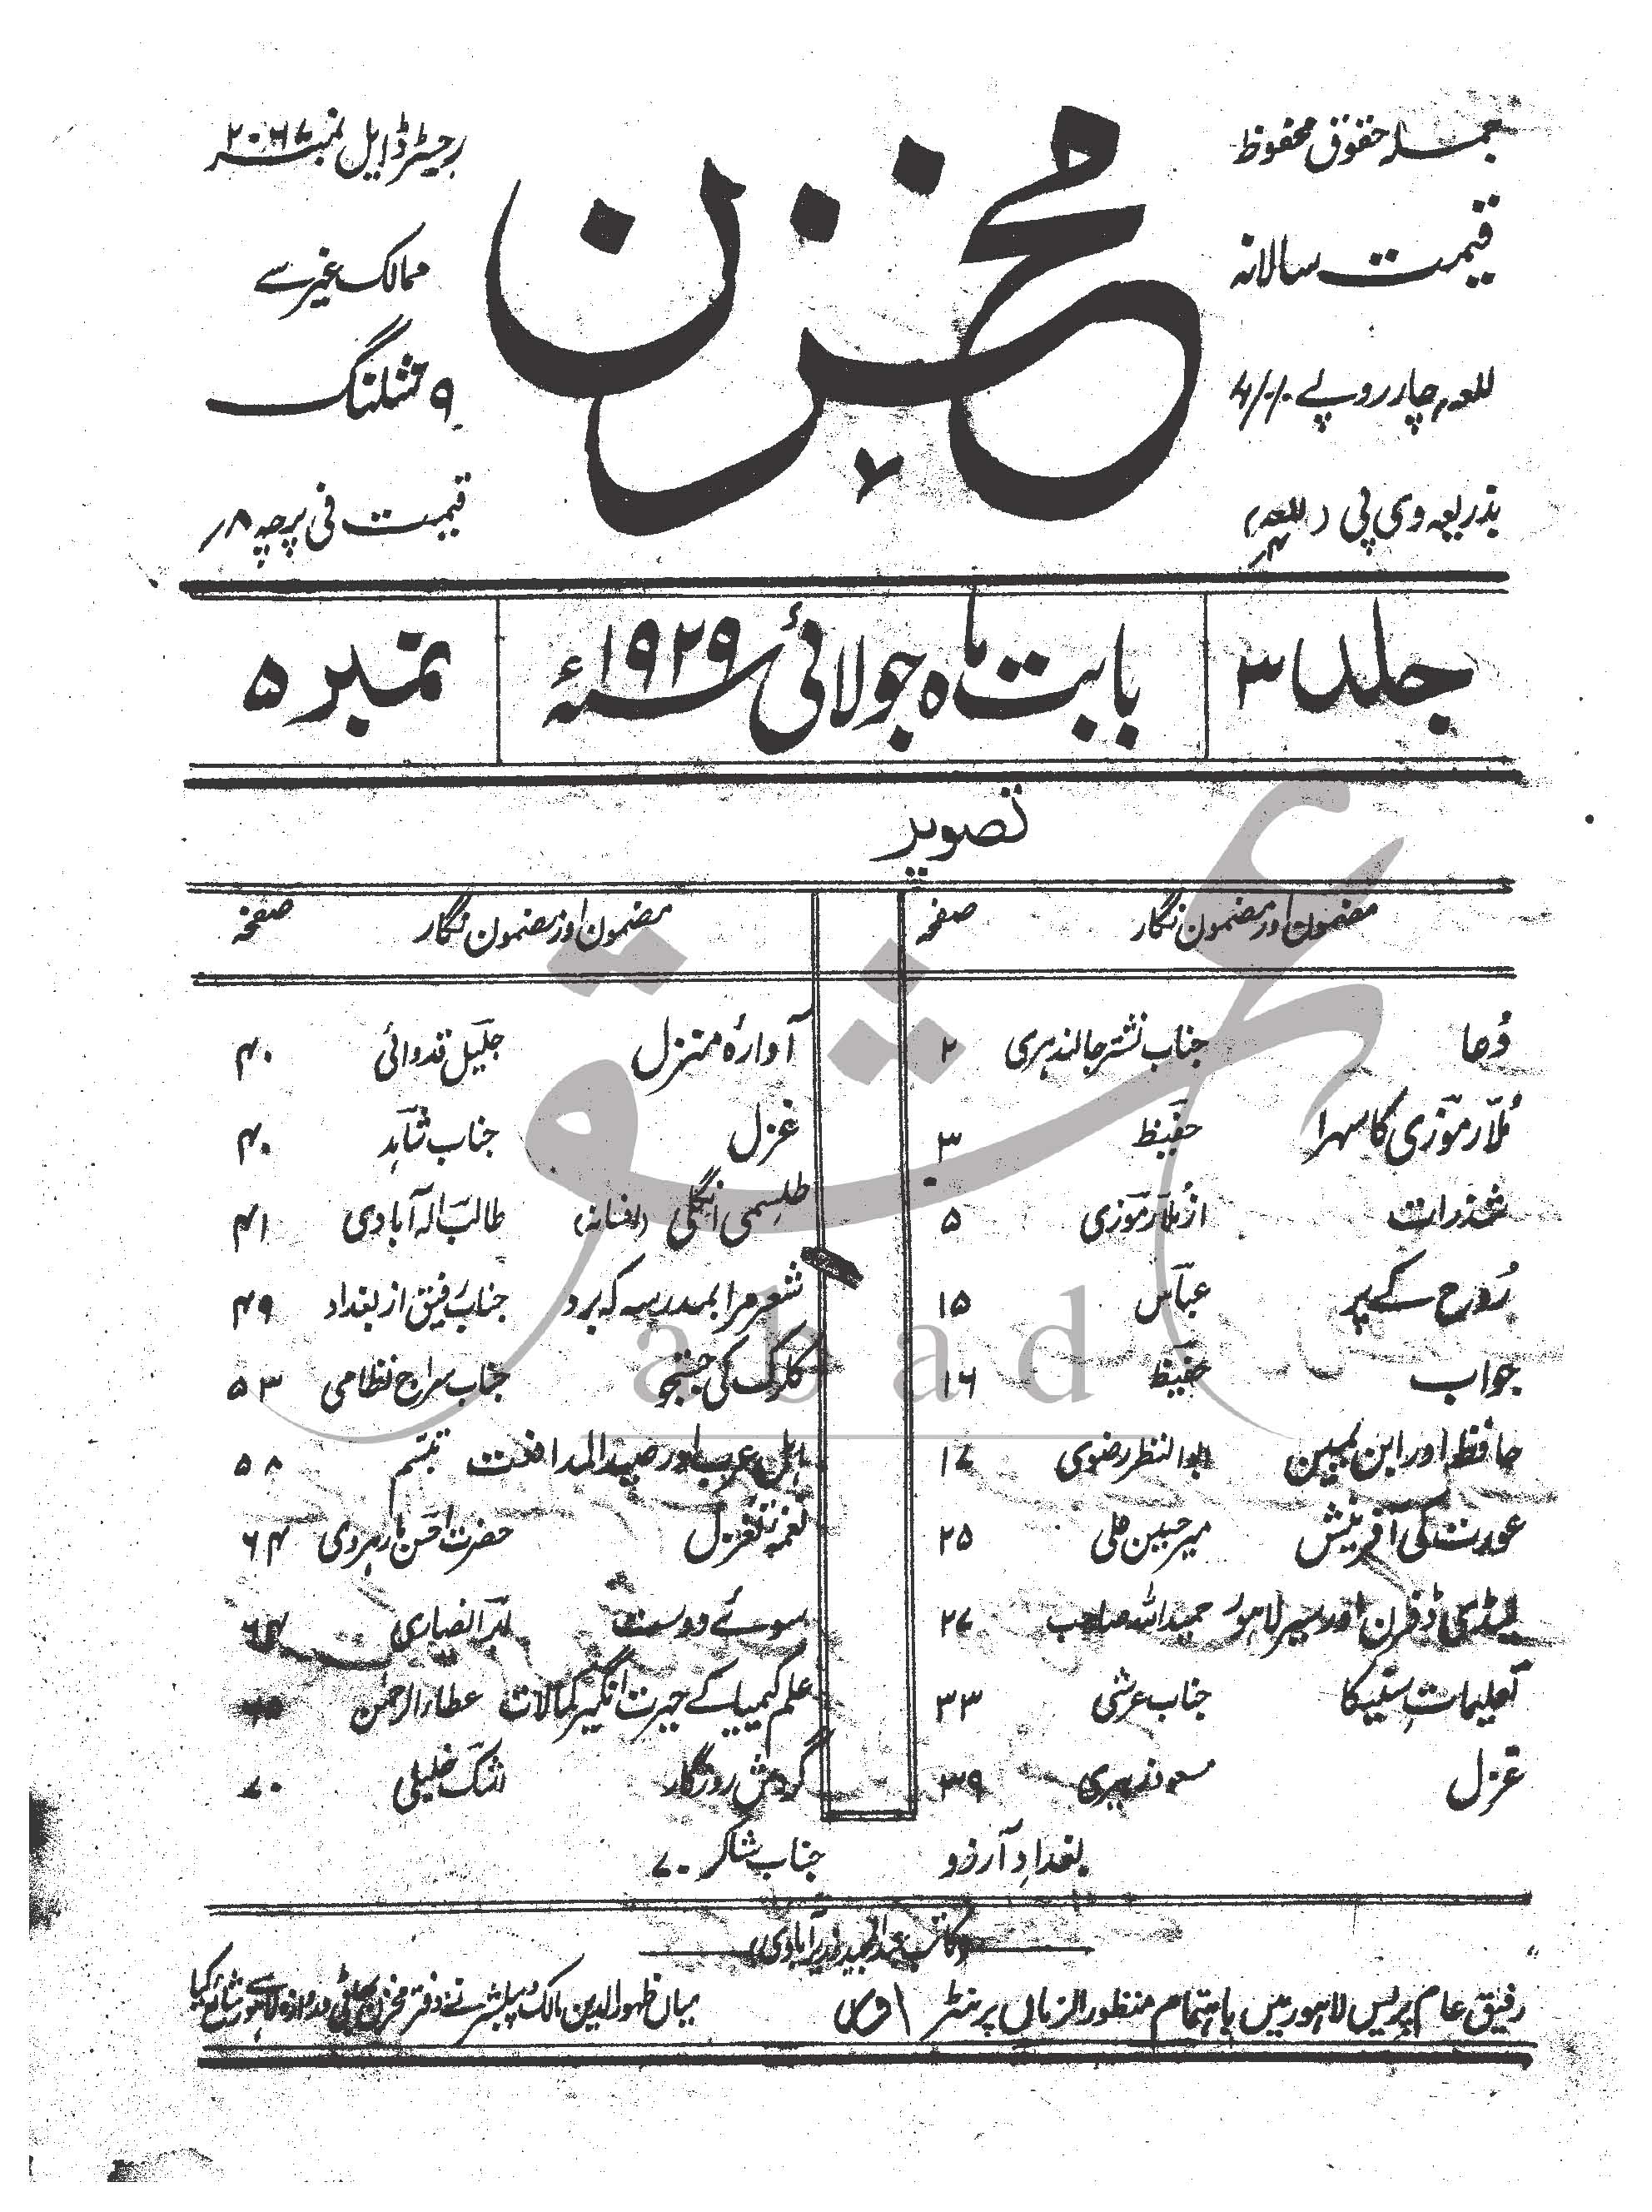 جملہ حقوق محفوظ
قیمت سالانہ
چار روپے
بذریعہ وی پی
مخزن
رجسٹرڈ ایل نمبر ۲۰۶۷
ممالک غیر سے
۹ شلنگ
قیمت فی پرچہ ۸؍
جلد ۳ بابت ماہ جولائی ۱۹۲۹ء نمبر ۵
تصویر
مضمون اور مضمون نگار صفحہ
دُعا جناب نشتر جالندہری ۲
مُلّا رموزی کا سہرا حفیظ ۳
شذرات از مُلّا رموزی ۵
رُوح کے پر عباس ۱۵
جواب حفیظ ۱۶
حافظ اور ابن یمین ابوالنظر رضوی ۱۷
عورت کی آفرینش میر حسین علی ۲۵
لیڈی ڈفرن اور سیر لاہور حمید اللہ صاحب ۲۷
تعلیمات سنیکا جناب عرشی ۳۳
غزل ۳۹
مضمون اور مضمون نگار صفحہ
آوارۂ منزل جلیل قدوائی ۴۰
غزل جناب شاہد ۴۰
طلسمی انگلی (افسانہ) طالب الہ آبادی ۴۱
شعر مرا بمدرسہ کہ برد جناب رفیق از بغداد ۴۹
کلرک کی جستجو جناب سراج نظامی ۵۳
اہل عرب اور صید المدافعت تبسّم ۵۸
نغمۂ تغزل حضرت احسن مارہروی ۶۴
سوئے دوست انصاری ۶۴
علم کیمیا کے حیرت انگیز کمالات عطاء الرحمٰن
گردش روزگار اشک خلیلی ۷۰
بغدادِ آرزو جناب شاکر ۷۰
رفیق عام پریس لاہور میں باہتمام منظور الزماں پرنٹر میاں ظہور الدین مالک و پبلشر نے دفتر مخزن لاہور سے شائع کیا
عشق
abad